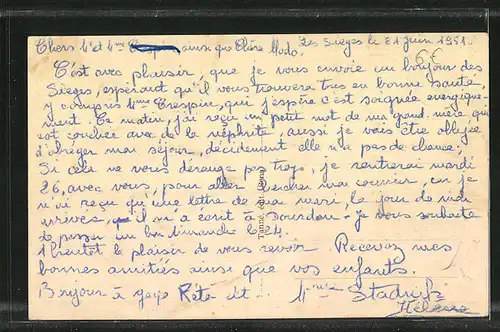 Chers Mr et Mme ainsi que Chère Modo. Les Sièges le 21 Juin 1951.
C'est avec plaisir, que je vous envoie un bonjour des
Sièges, espérant qu'il vous trouvera tres en bonne santé,
y compris Mme Crespin, qui j'espère c'est soignée énergique-
ment. Ce matin, j'ai reçu un petit mot de ma grand. mère qui
est couchée avec de la néphrite, aussi je vais être obligée
d'abréger mon séjour, décidément elle n'a pas de chance,
Si cela ne vous dérange pas trop, je rentrerai mardi
26, avec vous, pour aller chercher mon courrier, car je
n'ai reçu que une lettre de mon mari, le jour de mon
arrivée, qu'il m'a écrit à Dourdan. Je vous souhaite
de passer un bon dimanche le 24.
A bientôt le plaisir de vous revoir Recevez mes
bonnes amitiés ainsi que vos enfants.
Bonjour à gogo Reto et ... Mme
Hélène